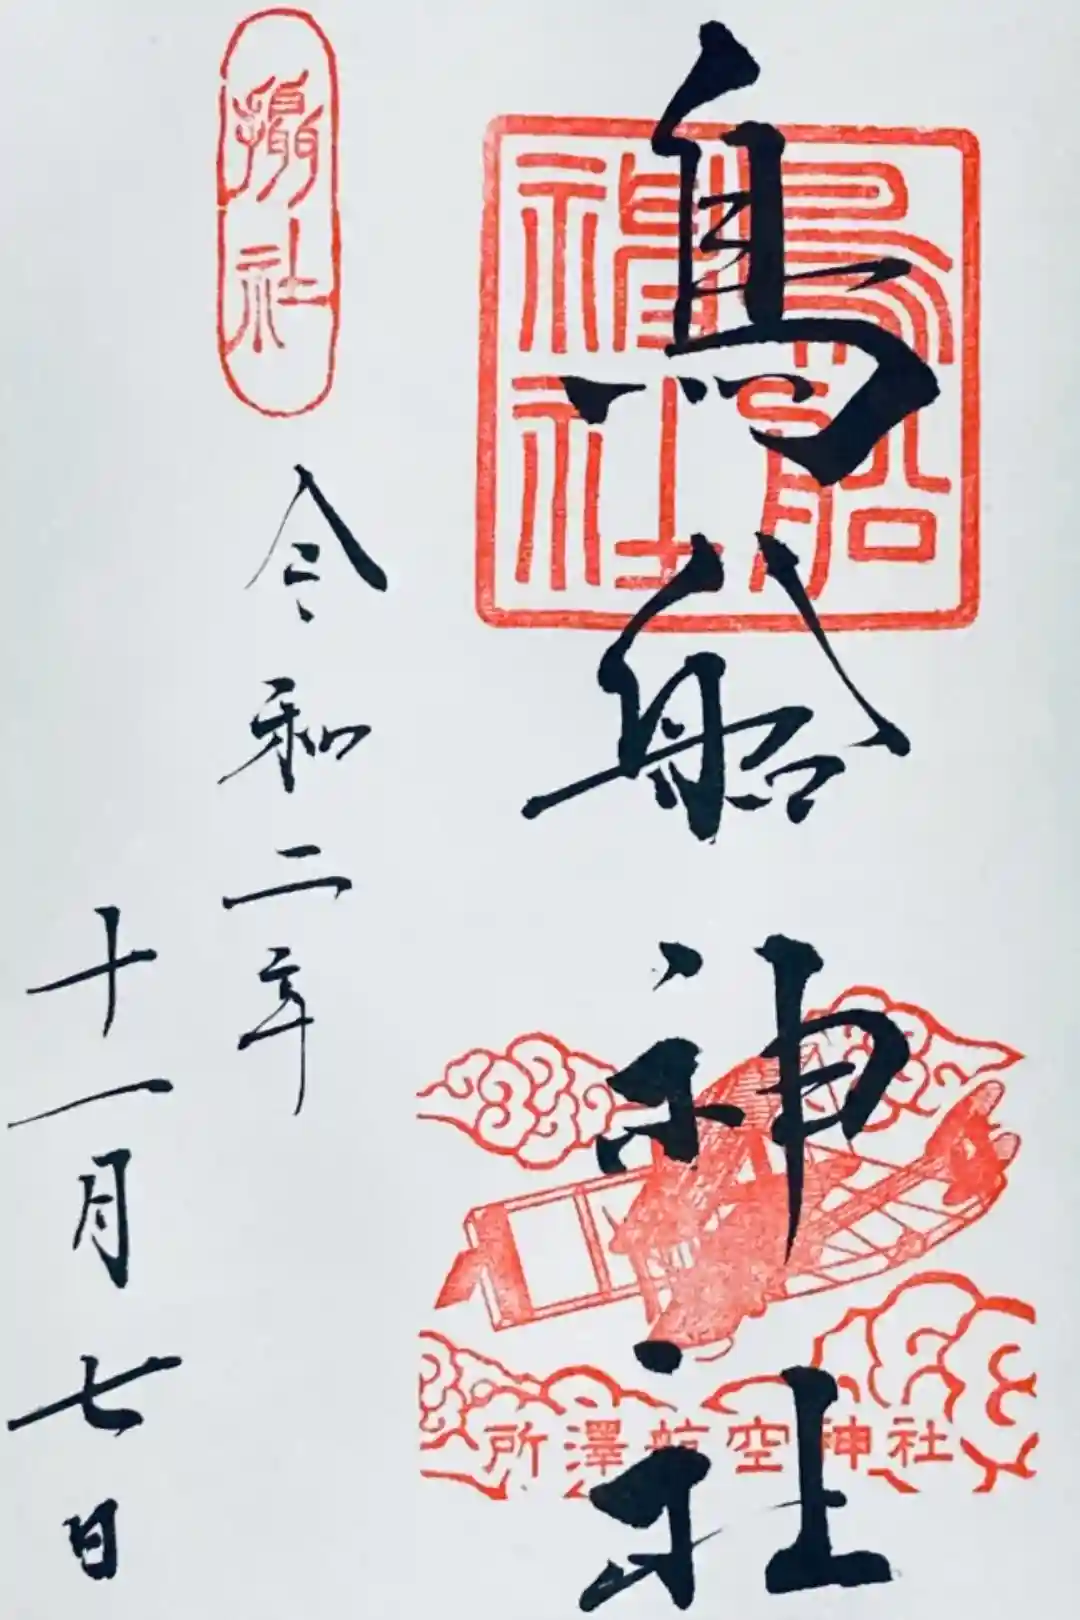 鳥船神社
鳥船
神社
所澤航空神社
社
令和二年
十一月七日